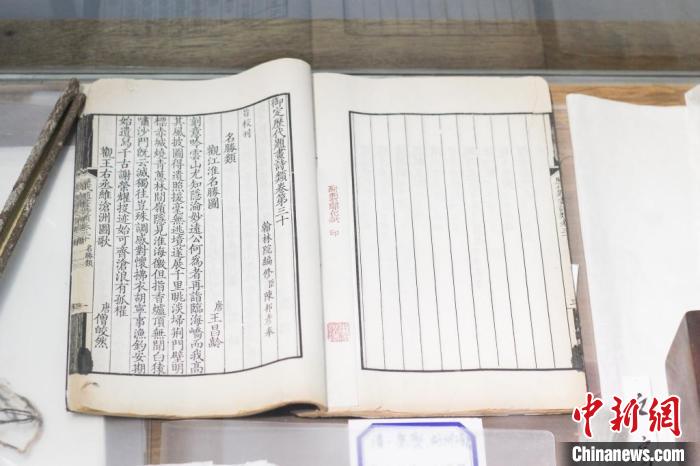 御定歷代題畫詩類卷第三十
翰林院編修臣陳邦彥奉
旨校刊
名勝類
觀江淮名勝圖 唐王昌齡
刻意吟雲山尤知隱淪妙遠公何為者再詣臨海嶠而我高
其風披圖得遺照援毫無逃境遂展千里眺淡掃荊門壁明
標赤城燒青蔥林間嶺隱見淮海徼但指香爐頂無聞白猿
嘯沙門既云滅獨往豈殊調感對懷拂衣胡寧事漁釣安期
始遺舄千古謝榮耀投迹可齊滄浪有孤櫂
觀王右丞維滄洲圖歌 唐僧皎然
名勝類
印
中新网
Chinanews.com